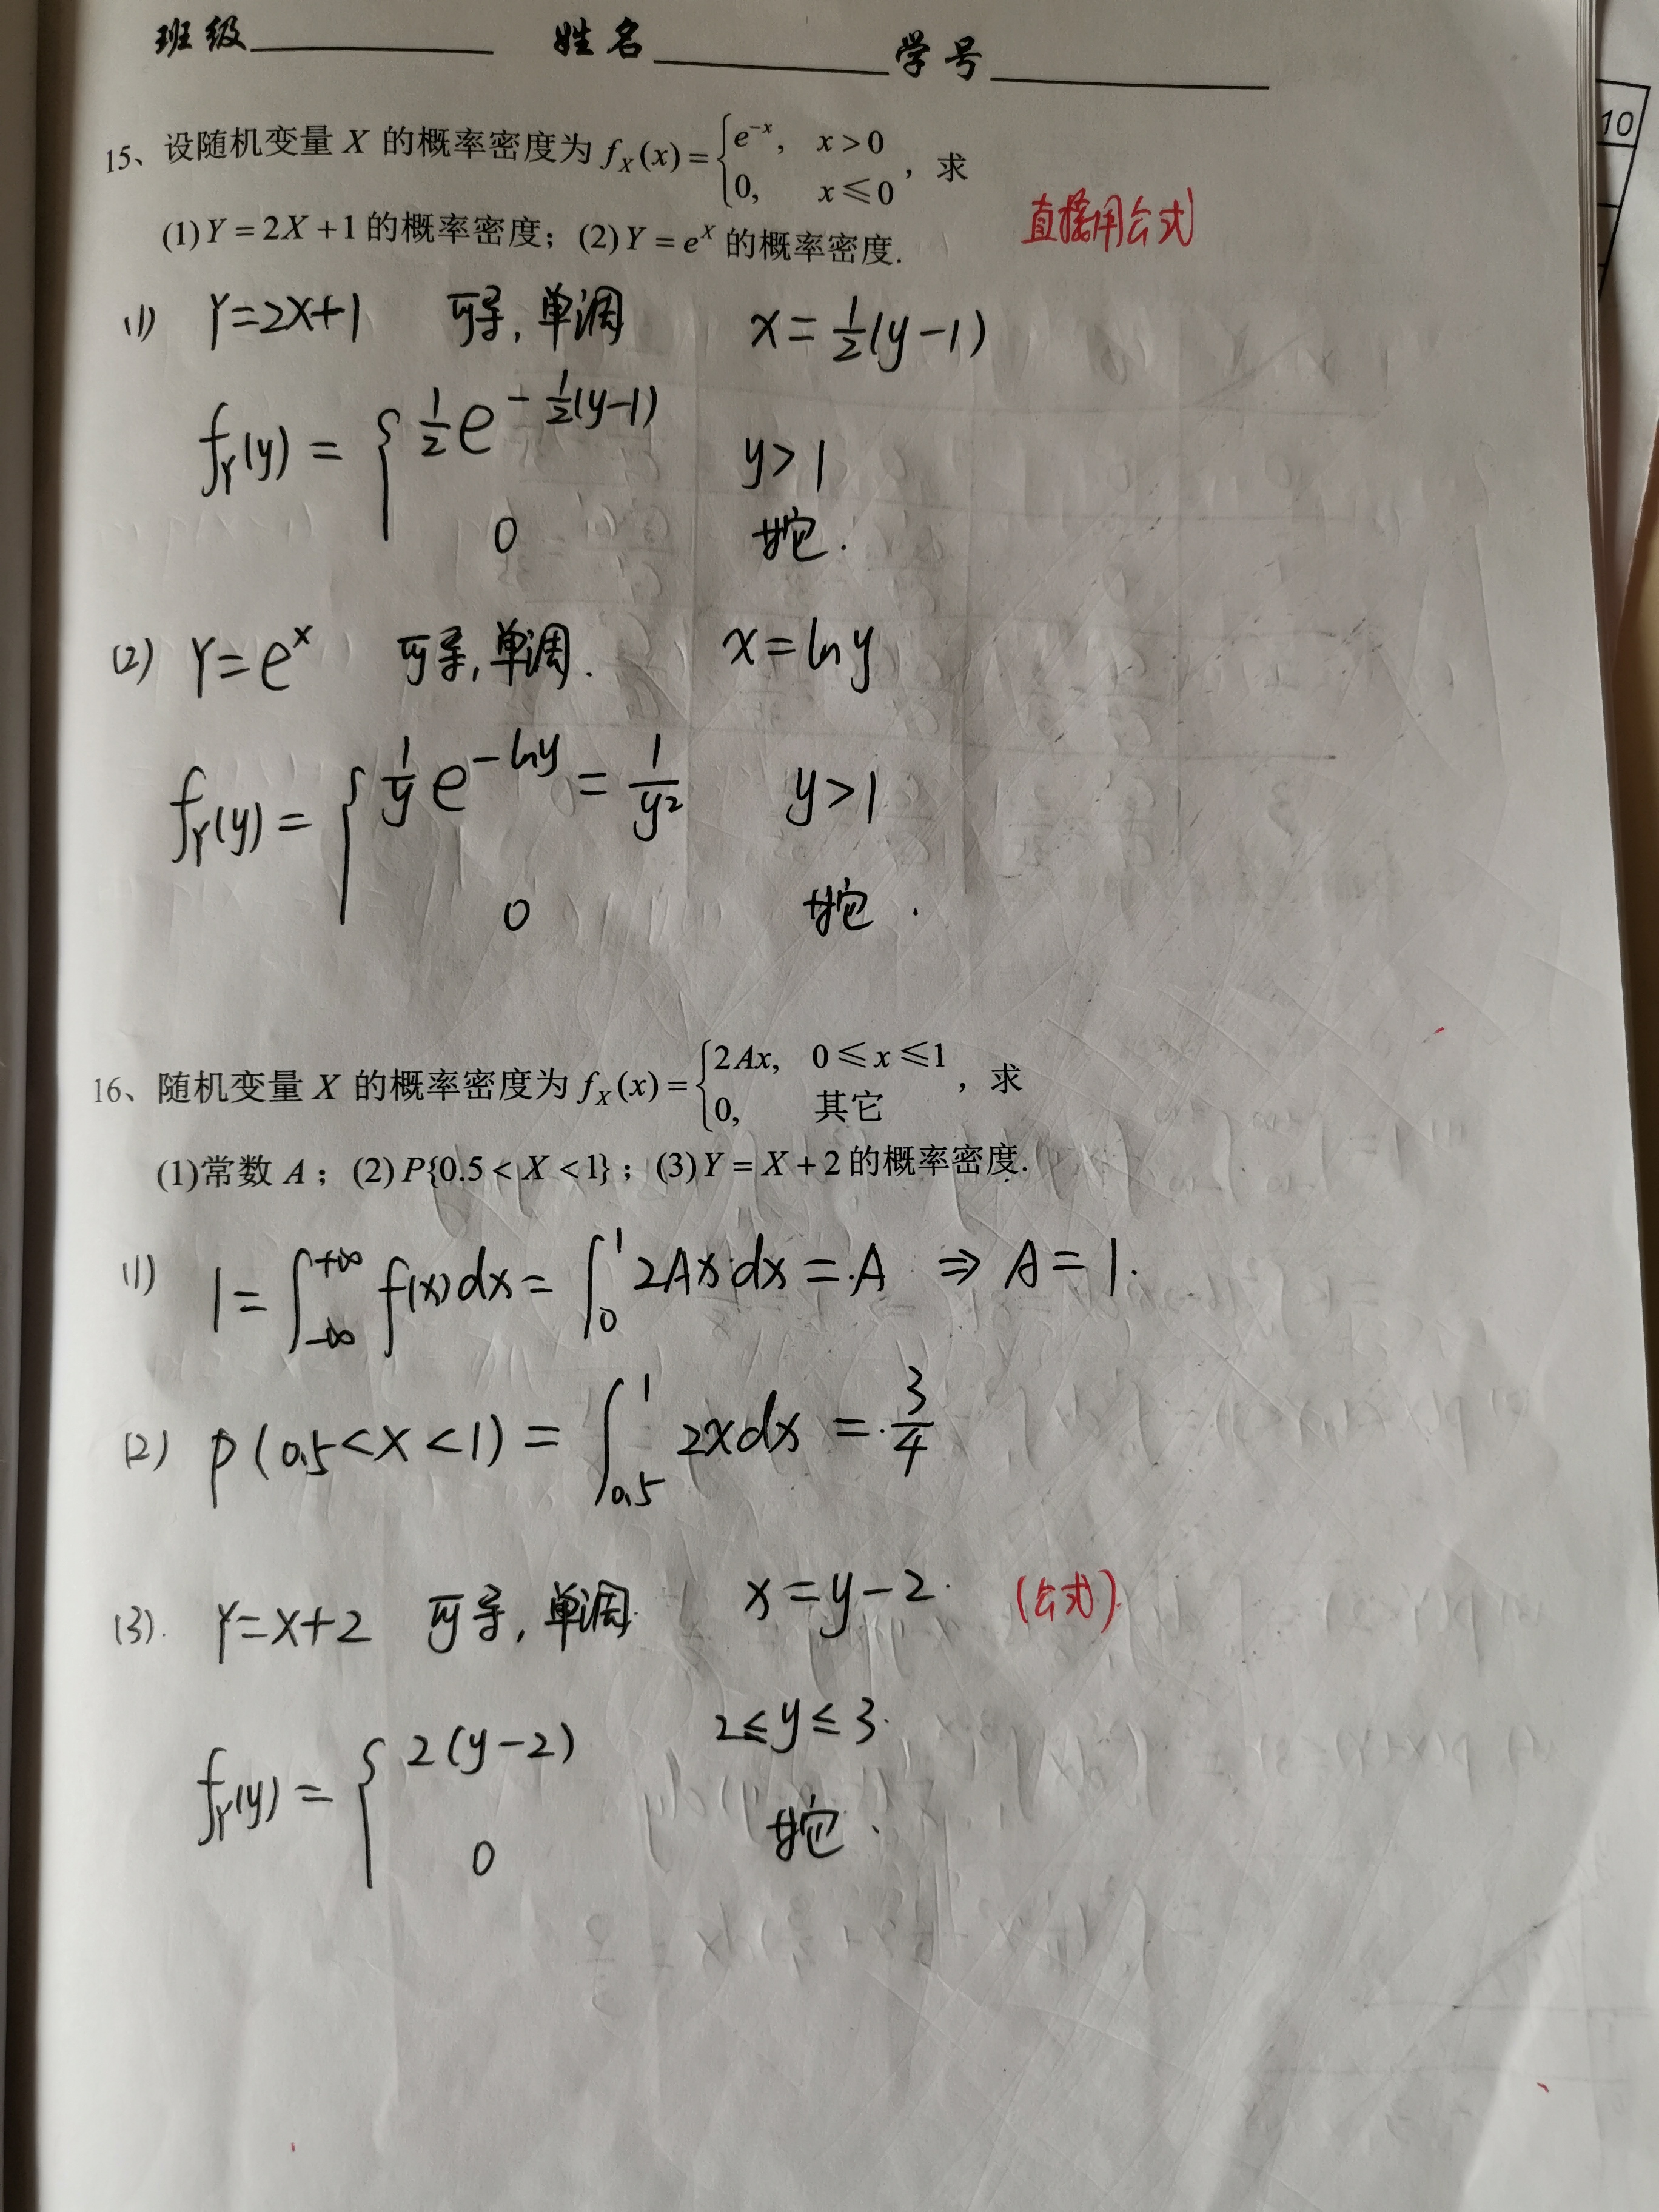 班级 姓名 学号
10
15、设随机变量 X 的概率密度为 f_X(x) = { e^{-x}, x > 0
0, x ≤ 0 ，求
(1) Y = 2X + 1 的概率密度；(2) Y = e^X 的概率密度.
直接用公式
(1) Y = 2X+1 可导，单调 x = 1/2 (y-1)
f_Y(y) = { 1/2 e^{-1/2(y-1)} y > 1
0 其它.
(2) Y = e^x 可导，单调. x = ln y
f_Y(y) = { 1/y e^{-ln y} = 1/y² y > 1
0 其它.
16、随机变量 X 的概率密度为 f_X(x) = { 2Ax, 0 ≤ x ≤ 1
0, 其它 ，求
(1)常数 A；(2) P{0.5 < X < 1}；(3) Y = X + 2 的概率密度.
(1) 1 = ∫_{-∞}^{+∞} f(x)dx = ∫_0^1 2Ax dx = A ⇒ A = 1.
(2) P(0.5 < X < 1) = ∫_{0.5}^1 2x dx = 3/4
(3). Y = X+2 可导，单调. x = y-2. (公式).
f_Y(y) = { 2(y-2) 2 ≤ y ≤ 3.
0 其它.